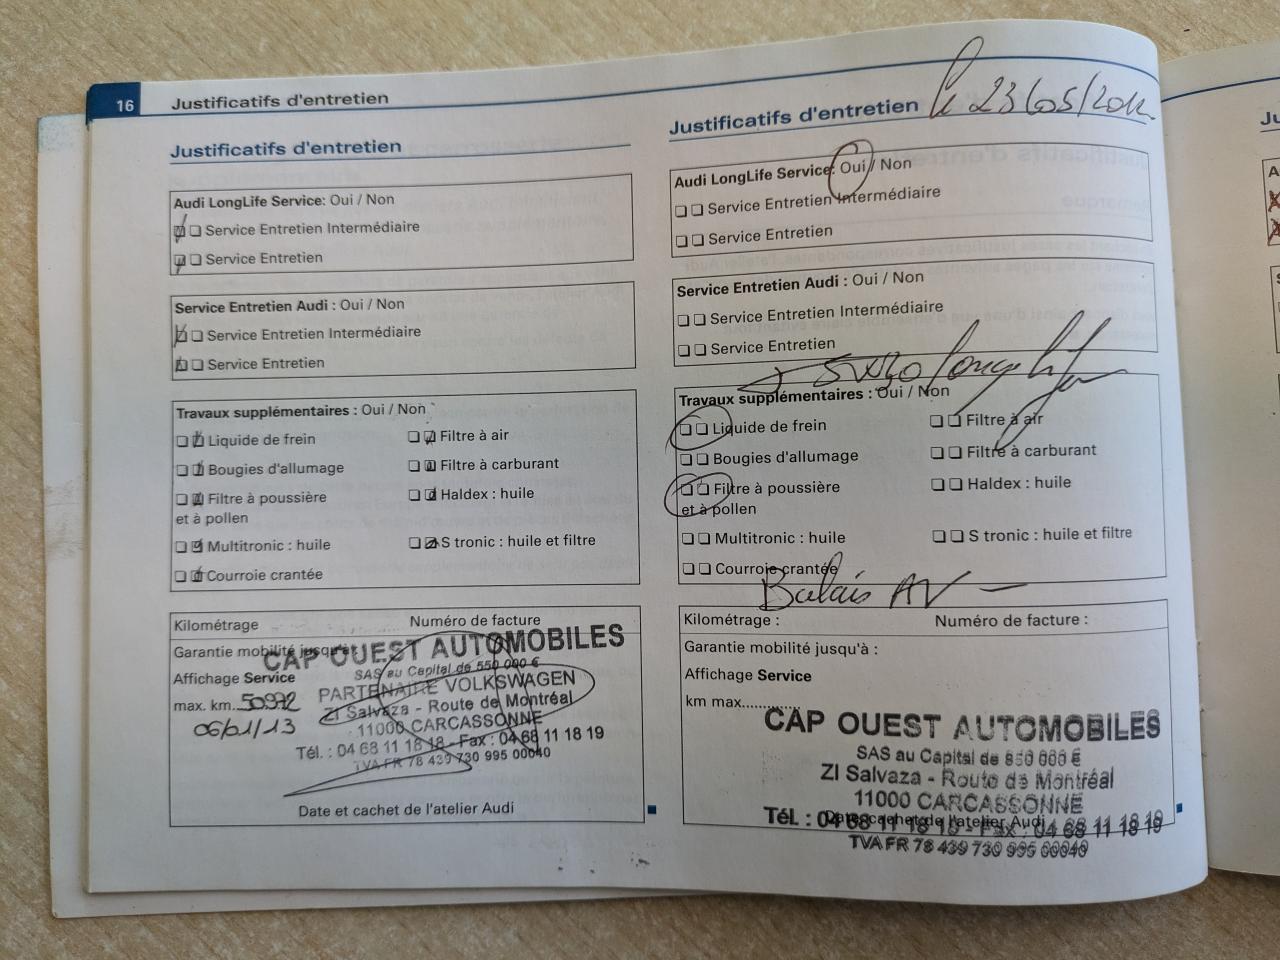 16
Justificatifs d'entretien
Justificatifs d'entretien
Audi LongLife Service: Oui / Non
Service Entretien Intermédiaire
Service Entretien
Service Entretien Audi : Oui / Non
Service Entretien Intermédiaire
Service Entretien
Travaux supplémentaires : Oui / Non
Liquide de frein
Filtre à air
Bougies d'allumage
Filtre à carburant
Filtre à poussière
et à pollen
Haldex : huile
Multitronic : huile
S tronic : huile et filtre
Courroie crantée
Kilométrage
Numéro de facture
Garantie mobilité jusqu'à
CAP OUEST AUTOMOBILES
SAS au Capital de 550 000 €
Affichage Service
PARTENAIRE VOLKSWAGEN
max. km.
ZI Salvaza - Route de Montréal
06/01/13
11000 CARCASSONNE
Tél. : 04 68 11 18 18 - Fax : 04 68 11 18 19
TVA FR 78 439 730 995 00040
Date et cachet de l'atelier Audi
Justificatifs d'entretien
le 23/05/2012
Audi LongLife Service: Oui / Non
Service Entretien Intermédiaire
Service Entretien
Service Entretien Audi : Oui / Non
Service Entretien Intermédiaire
Service Entretien
5W30 longlife
Travaux supplémentaires : Oui / Non
Liquide de frein
Filtre à air
Bougies d'allumage
Filtre à carburant
Filtre à poussière
et à pollen
Haldex : huile
Multitronic : huile
S tronic : huile et filtre
Courroie crantée
Balais AV
Kilométrage :
Numéro de facture :
Garantie mobilité jusqu'à :
Affichage Service
km max............
CAP OUEST AUTOMOBILES
SAS au Capital de 550 000 €
ZI Salvaza - Route de Montréal
11000 CARCASSONNE
Tél. : 04 68 11 18 18 - Fax : 04 68 11 18 19
Date cachet de l'atelier Audi
TVA FR 78 439 730 995 00040